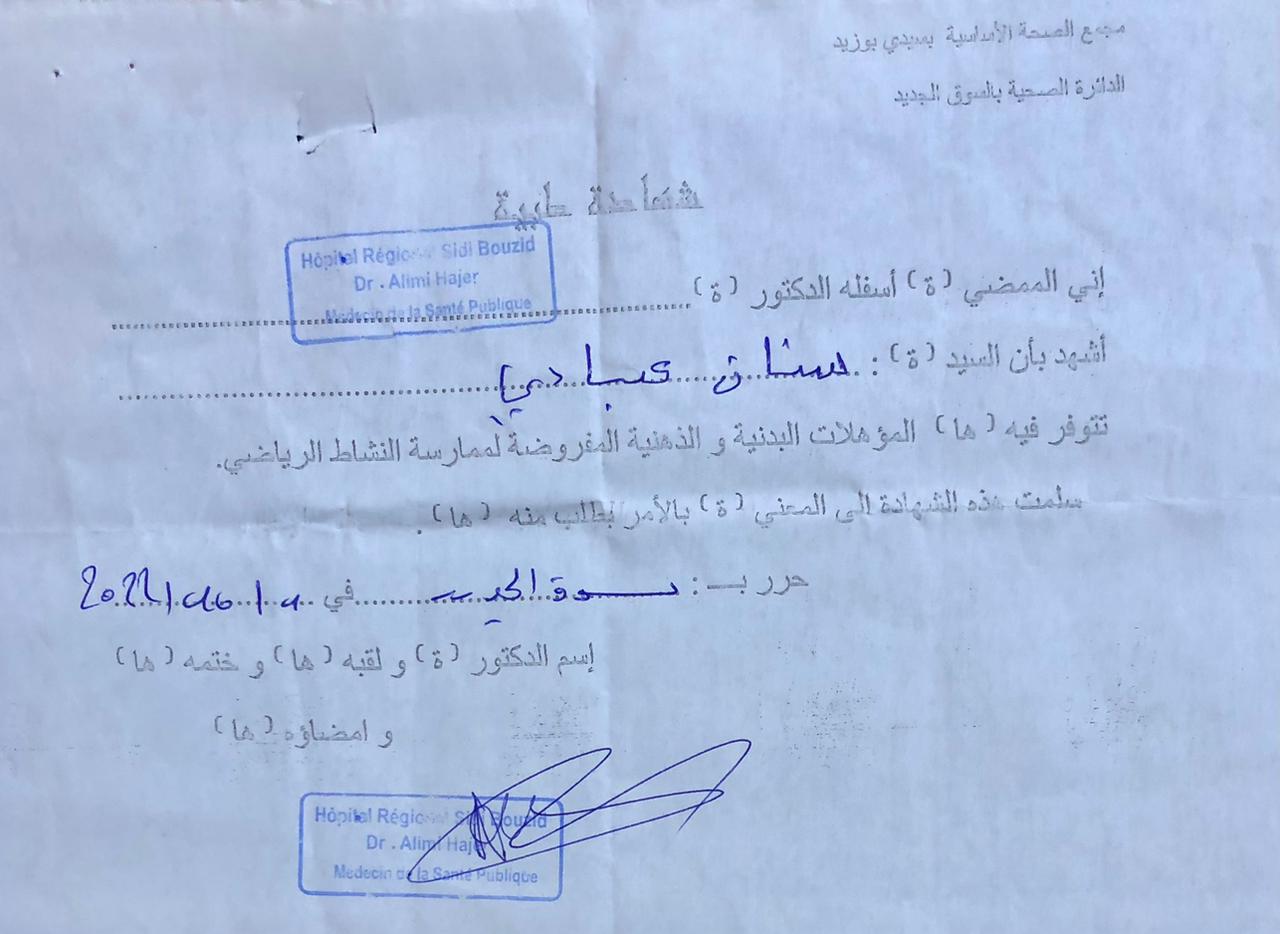 مجمع الصحة الأساسية بسيدي بوزيد
الدائرة الصحية بالسوق الجديد
شهادة طبية
Hôpital Régional Sidi Bouzid
Dr . Alimi Hajer
Medecin de la Santé Publique
إني الممضي (ة) أسفله الدكتور (ة)
أشهد بأن السيد (ة) : سنان عبادي
تتوفر فيه (ها) المؤهلات البدنية و الذهنية المفروضة لممارسة النشاط الرياضي.
سلمت هذه الشهادة إلى المعني (ة) بالأمر بطلب منه (ها) .
حرر بـ : في
إسم الدكتور (ة) و لقبه (ها) و ختمه (ها)
و امضاؤه (ها)
Hôpital Régional Sidi Bouzid
Dr . Alimi Hajer
Medecin de la Santé Publique